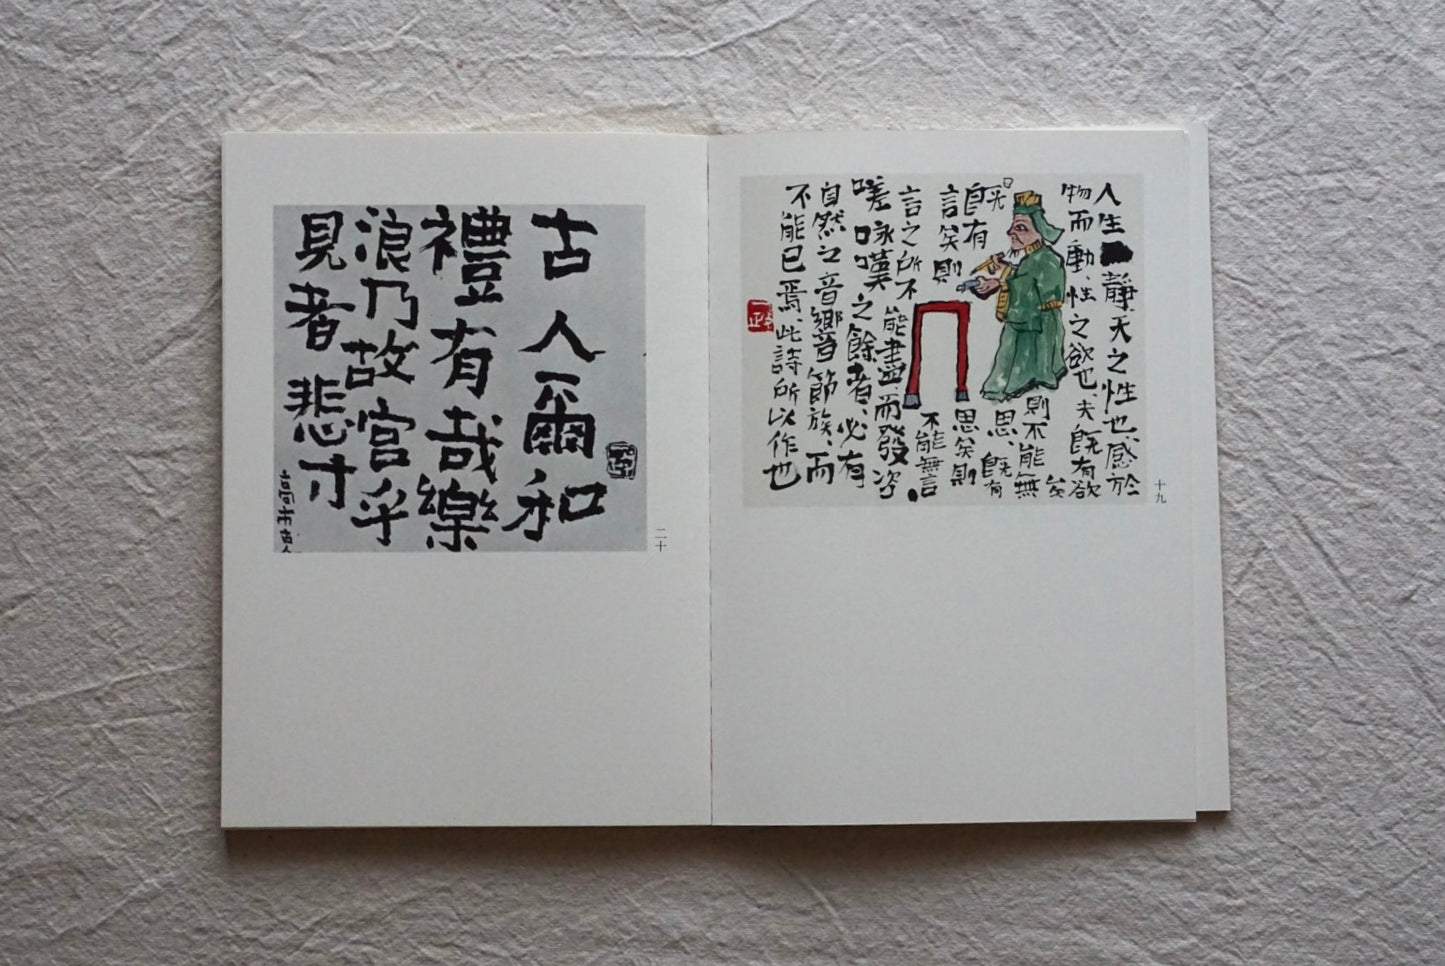 人生靜、天之性也、感於
物而動、性之欲也、夫旣有欲
矣
則不能無
思、旣有
思矣則
不能無言
旣
自有
言矣則
言之所不能盡、而發咨
嗟咏嘆之餘者、必有
自然之音響節族、而
不能已焉、此詩所以作也
一政
十九
古人爾和
禮有哉樂
浪乃故宮乎
見者悲寸
高市古人
二十